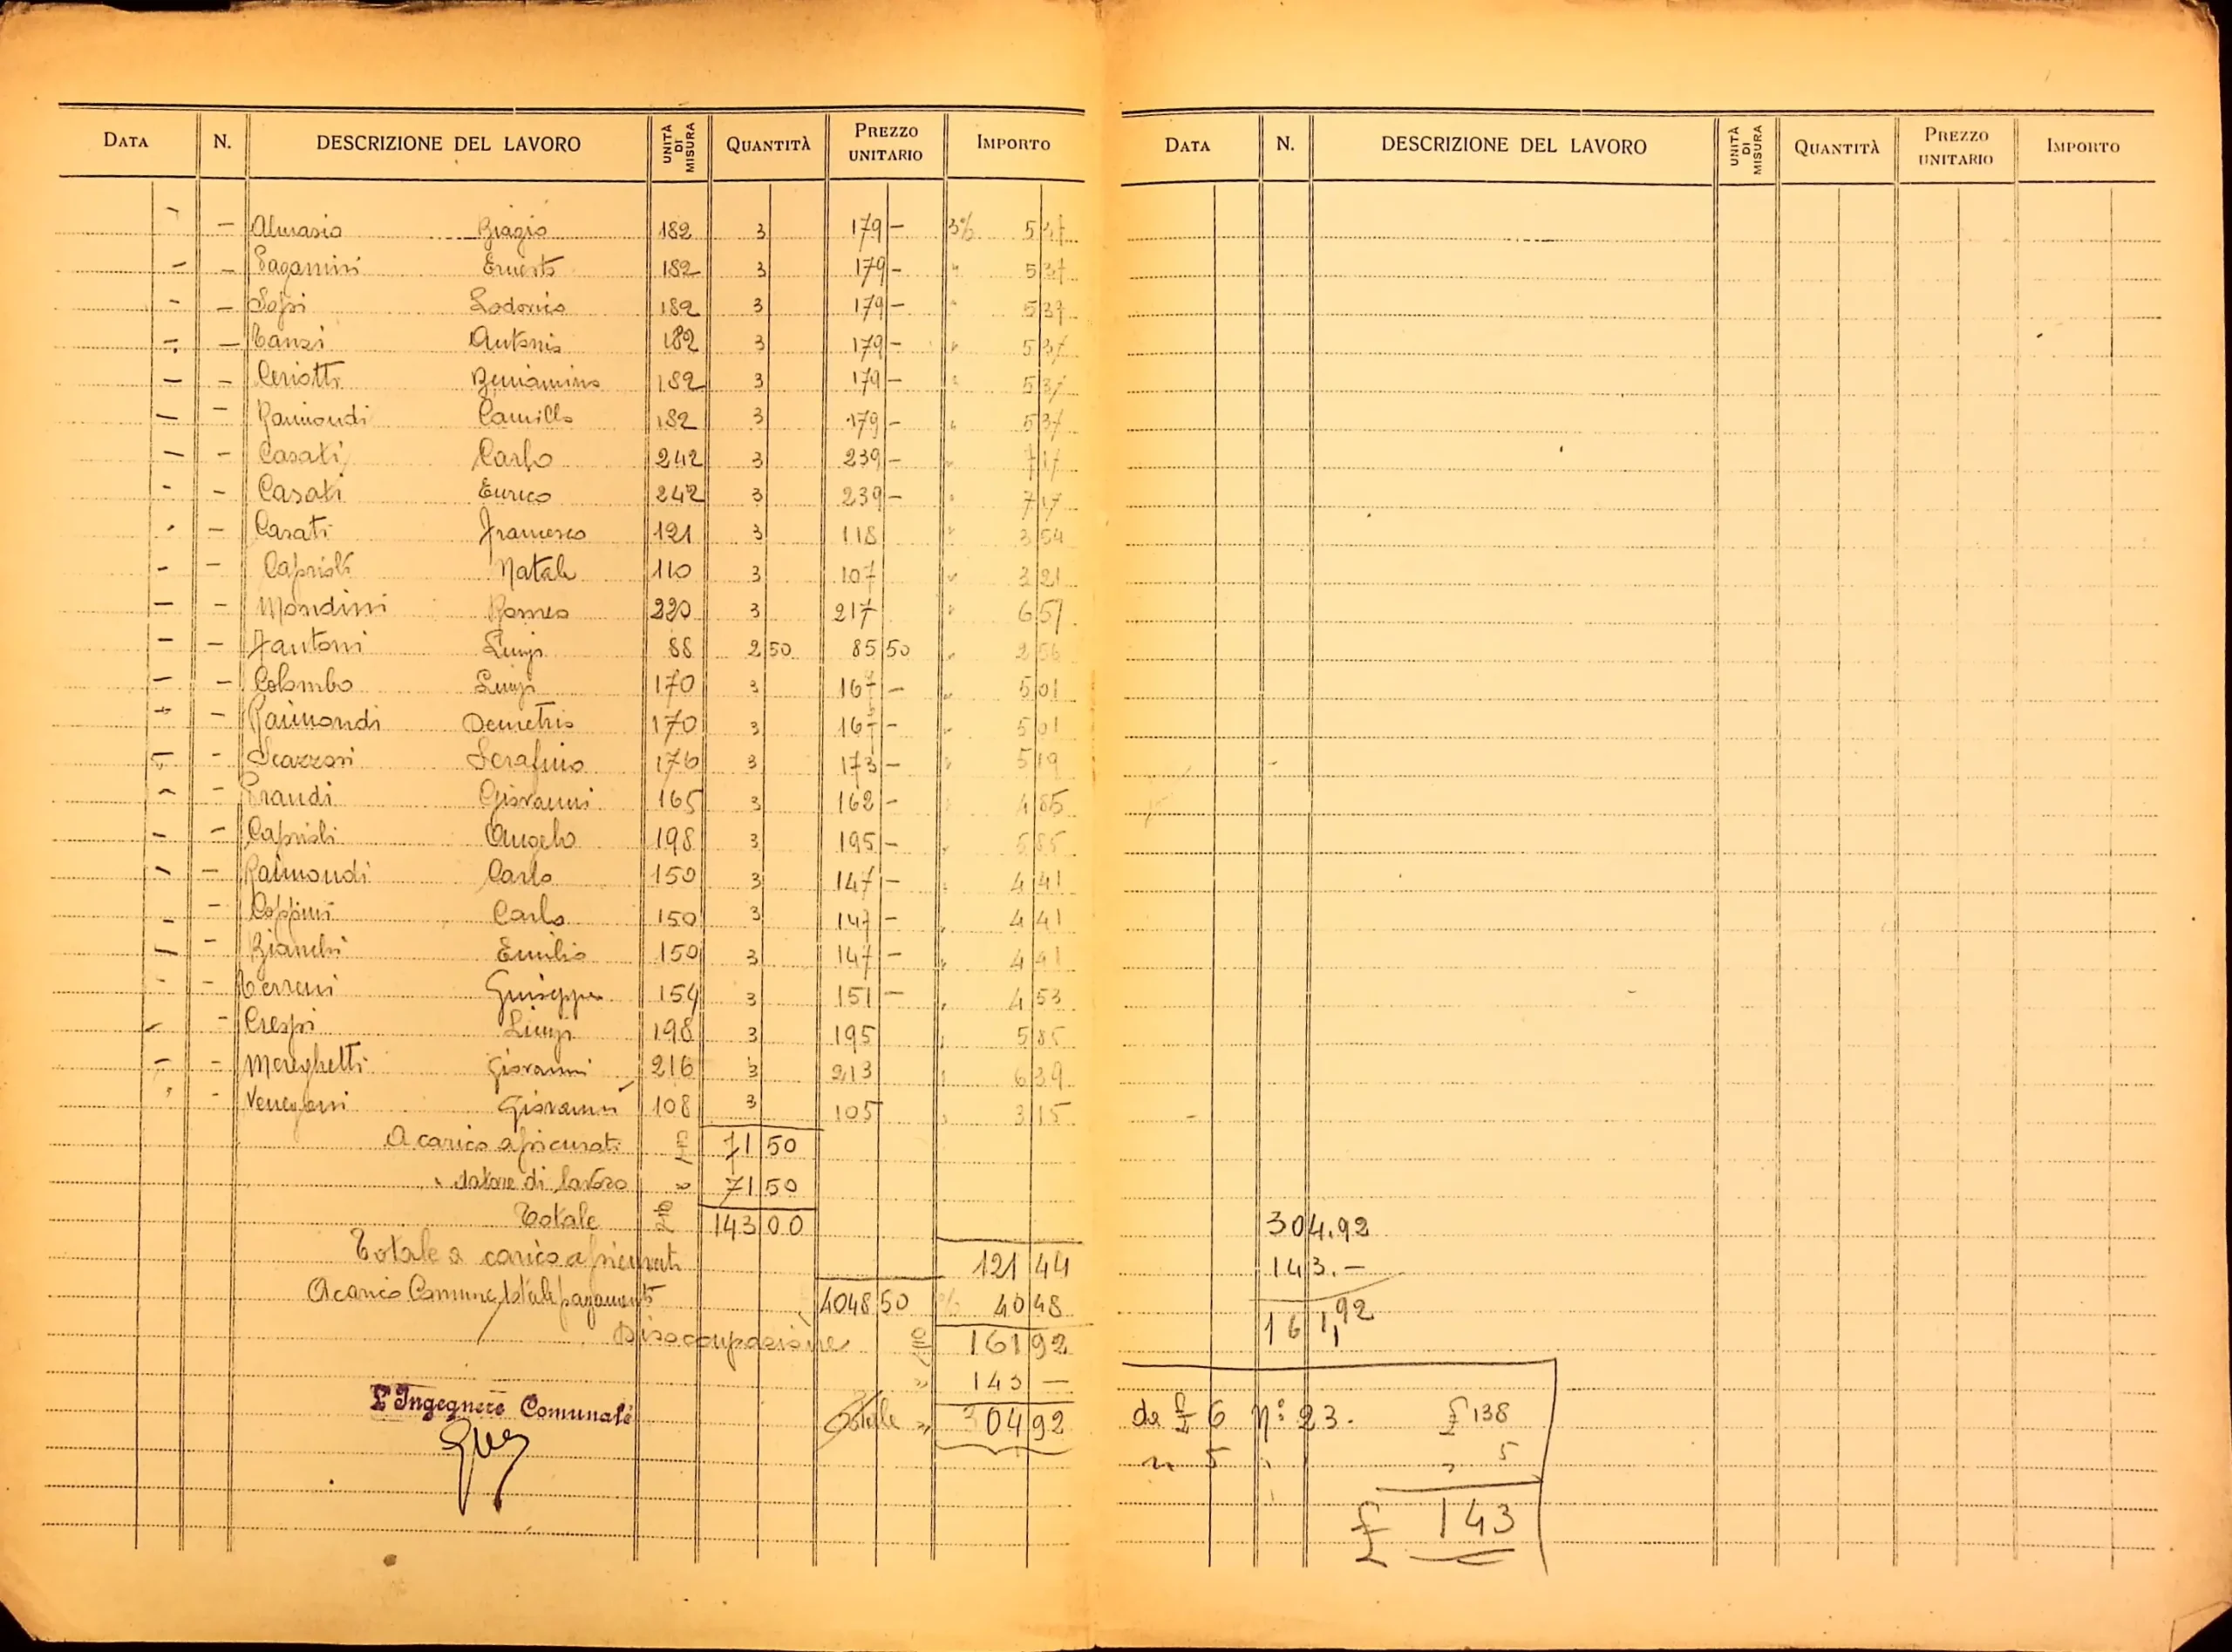 DATA N. DESCRIZIONE DEL LAVORO UNITÀ DI MISURA QUANTITÀ PREZZO UNITARIO IMPORTO
— Almasio Biagio 182 3 179 — 3% 5 37
— — Pagamini Ernesto 182 3 179 — " 5 37
— — Lodovico 182 3 179 — " 5 37
— — Tanzi Antonio 182 3 179 — " 5 37
— — Ceriotti Beniamino 182 3 179 — " 5 37
— — Raimondi Camillo 182 3 179 — " 5 37
— — Casati Carlo 242 3 239 — " 7 17
— — Casati Enrico 242 3 239 — " 7 17
— Casati Francesco 121 3 118 " 3 54
— — Caprioli Natale 110 3 107 " 3 21
— — Mondini Romeo 220 3 217 " 6 51
— — Fantoni Luigi 88 2 50 85 50 " 2 56
— — Colombo Luigi 170 3 167 — " 5 01
— — Raimondi Demetrio 170 3 167 — " 5 01
— — Scazzosi Serafino 176 3 173 — " 5 19
— — Prandi Giovanni 165 3 162 — 4 85
— — Caprioli Angelo 198 3 195 — " 5 85
— — Raimondi Carlo 150 3 147 — " 4 41
— — Coppini Carlo 150 3 147 — " 4 41
— — Bianchi Emilio 150 3 147 — " 4 41
— — Terreni Giuseppe 154 3 151 — " 4 53
— — Crespi Luigi 198 3 195 " 5 85
— — Mereghetti Giovanni 216 3 213 " 6 39
— Venegoni Giovanni 108 3 105 " 3 15
A carico assicurati 71 50
" datore di lavoro " 71 50
Totale 143 00
Totale a carico assicurati 121 44
A carico Comune, totale pagamenti 4048 50 % 40 48
Disoccupazione 161 92
" 143 —
Totale " 304 92
L'Ingegnere Comunale
DATA N. DESCRIZIONE DEL LAVORO UNITÀ DI MISURA QUANTITÀ PREZZO UNITARIO IMPORTO
304.92
143.—
161,92
da £ 6 N° 23. £ 138
" 5 " 1 " 5
£ 143